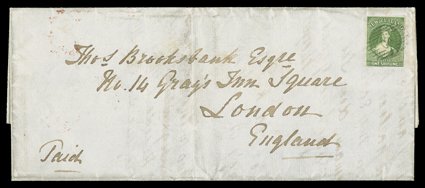 Thos Brooksbank Esqre
No. 14 Gray's Inn Square
London
England
Paid
ONE SHILLING